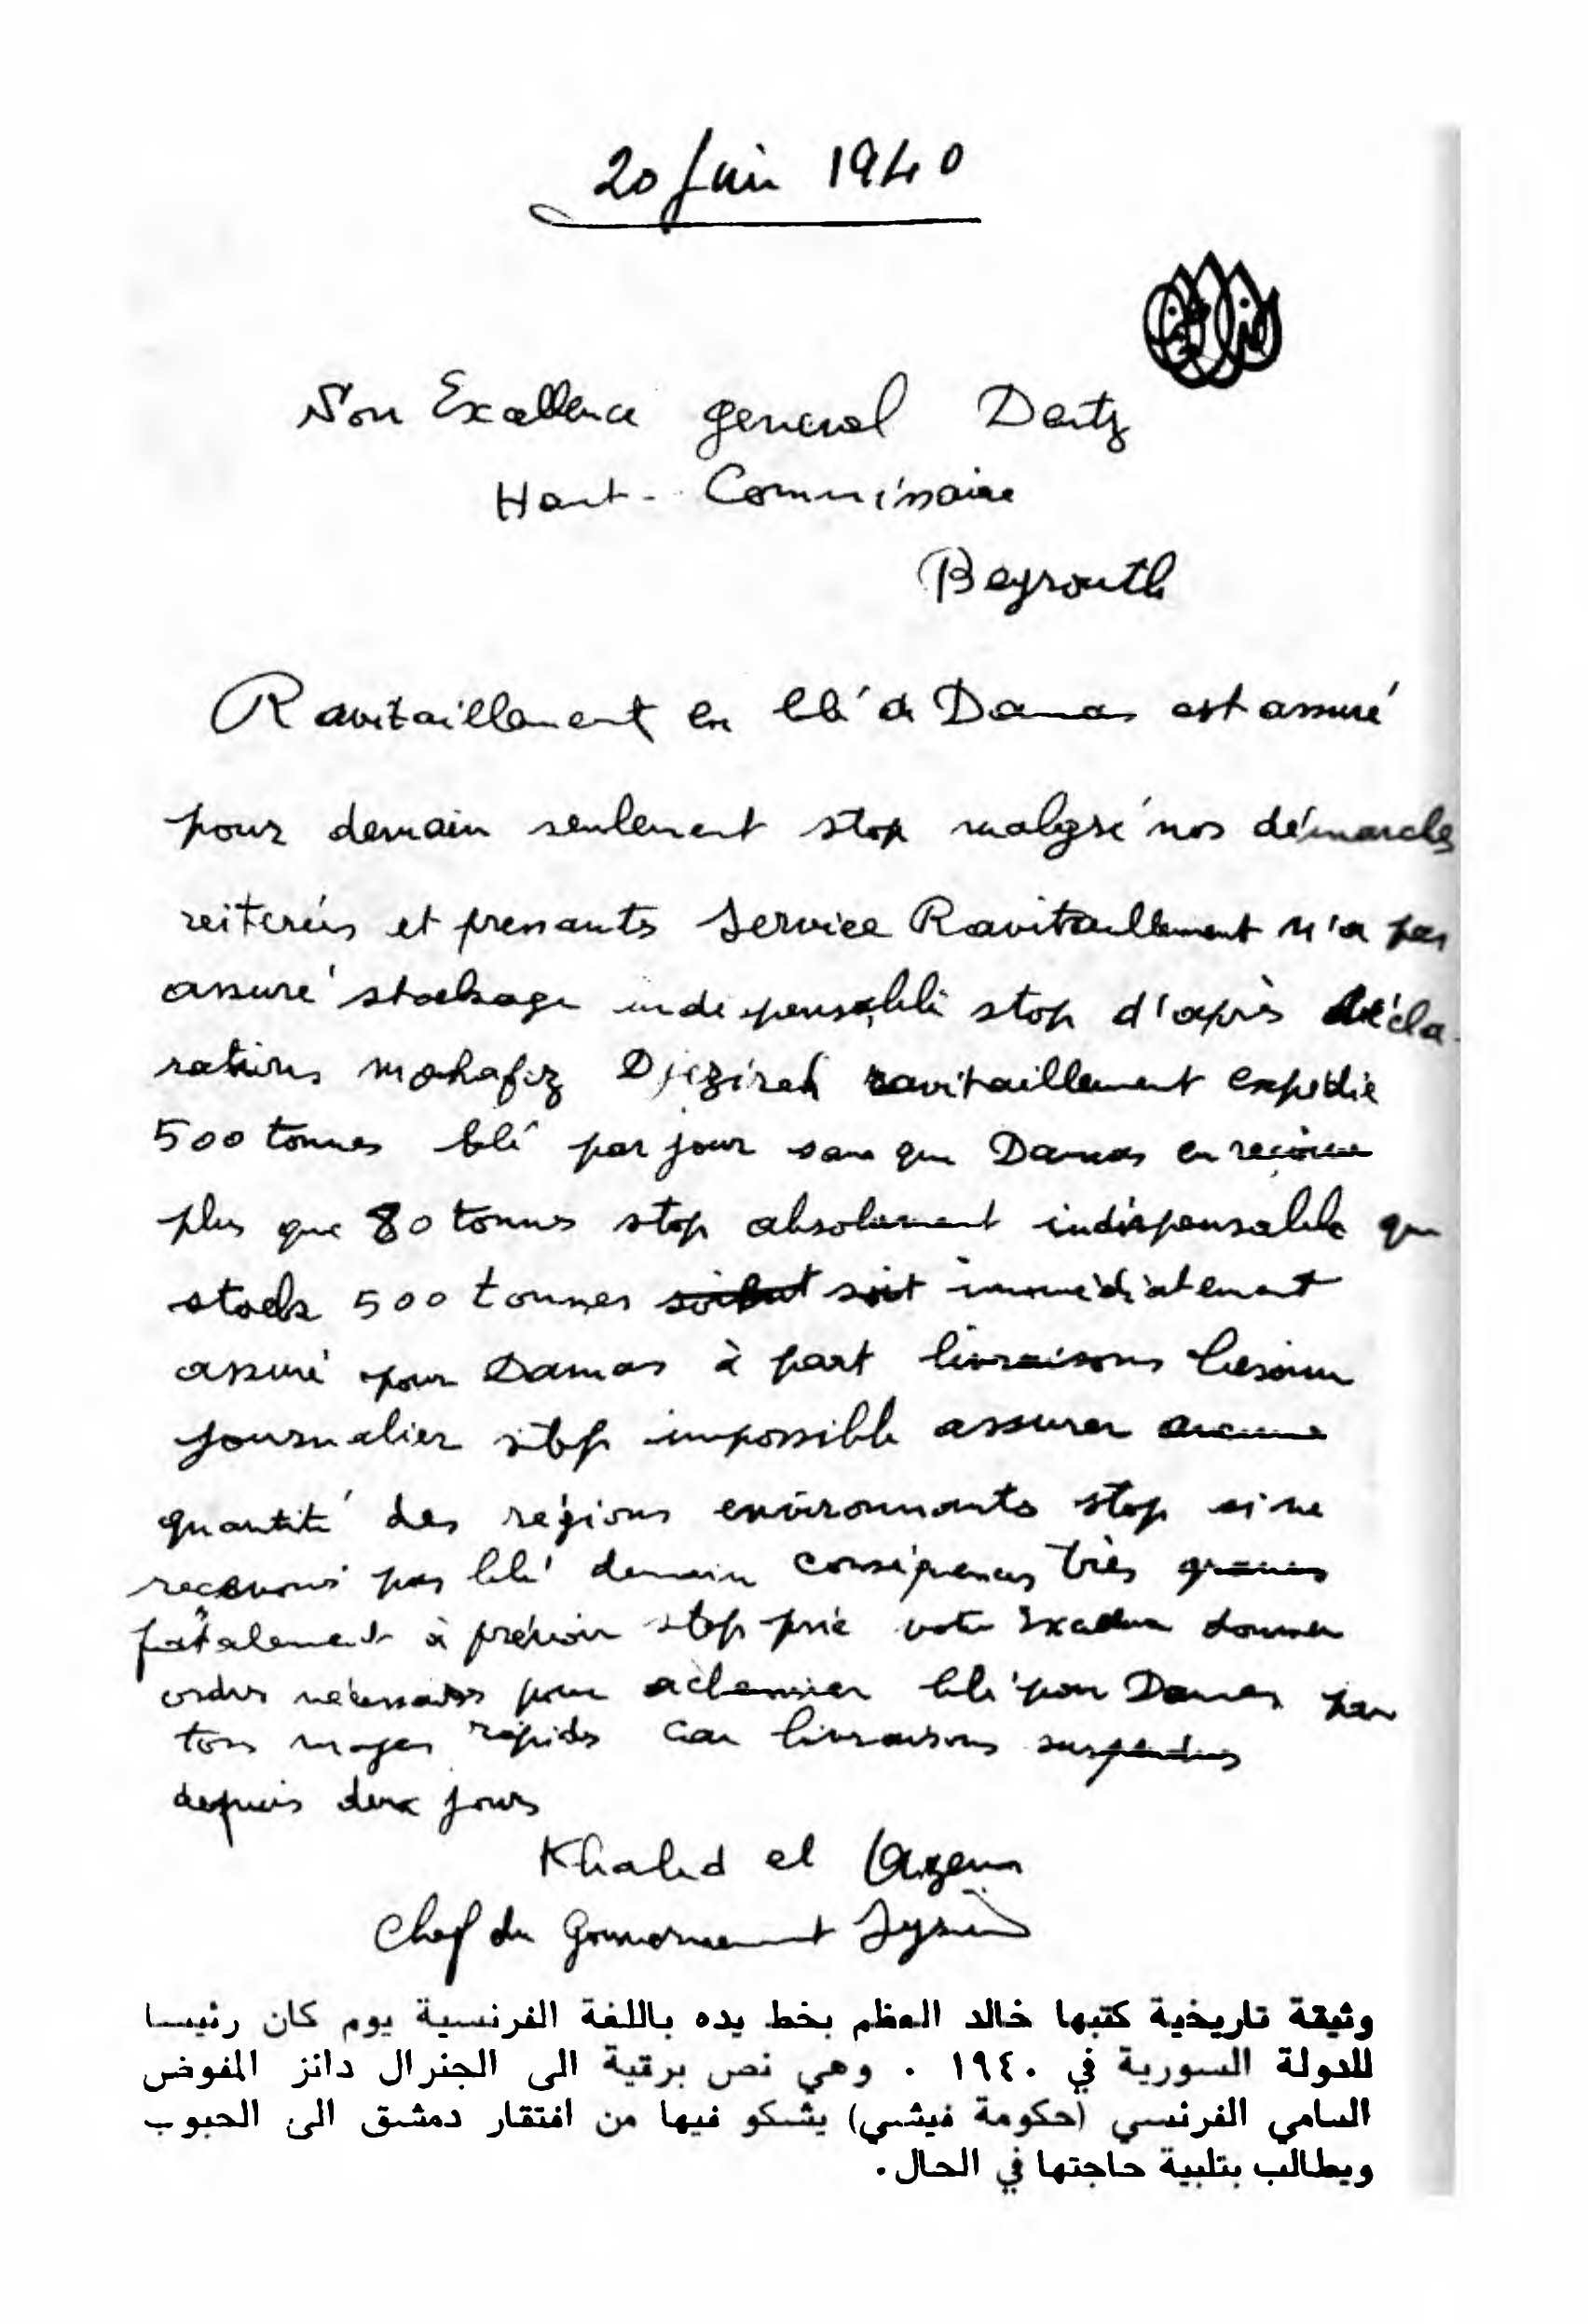 20 Juin 1940
Son Excellence general Dentz
Haut-Commissaire
Beyrouth
Ravitaillement en blé de Damas est assuré
pour demain seulement stop malgré nos démarches
reiterées et pressants Service Ravitaillement n'a pas
assuré stockage indispensable stop d'après décla-
rations mohafiz Djezireh ravitaillement expédie
500 tonnes blé par jour sans que Damas en reçoive
plus que 80 tonnes stop absolument indispensable que
stock 500 tonnes soit immédiatement
assuré pour Damas à part livraisons besoin
journalier stop impossible assurer aucune
quantité des régions environnants stop si ne
recevons pas blé demain conséquences très graves
fatalement à prévoir stop prie votre Excellence donner
ordres nécessaires pour acheminer blé pour Damas par
tous moyen rapides car livraisons suspendus
depuis deux jours
Khaled el Azem
Chef du Gouvernement Syrien
وثيقة تاريخية كتبها خالد العظم بخط يده باللغة الفرنسية يوم كان رئيسا
للدولة السورية في ١٩٤٠ . وهي نص برقية الى الجنرال دانز المفوض
السامي الفرنسي (حكومة فيشي) يشكو فيها من افتقار دمشق الى الحبوب
ويطالب بتلبية حاجتها في الحال.